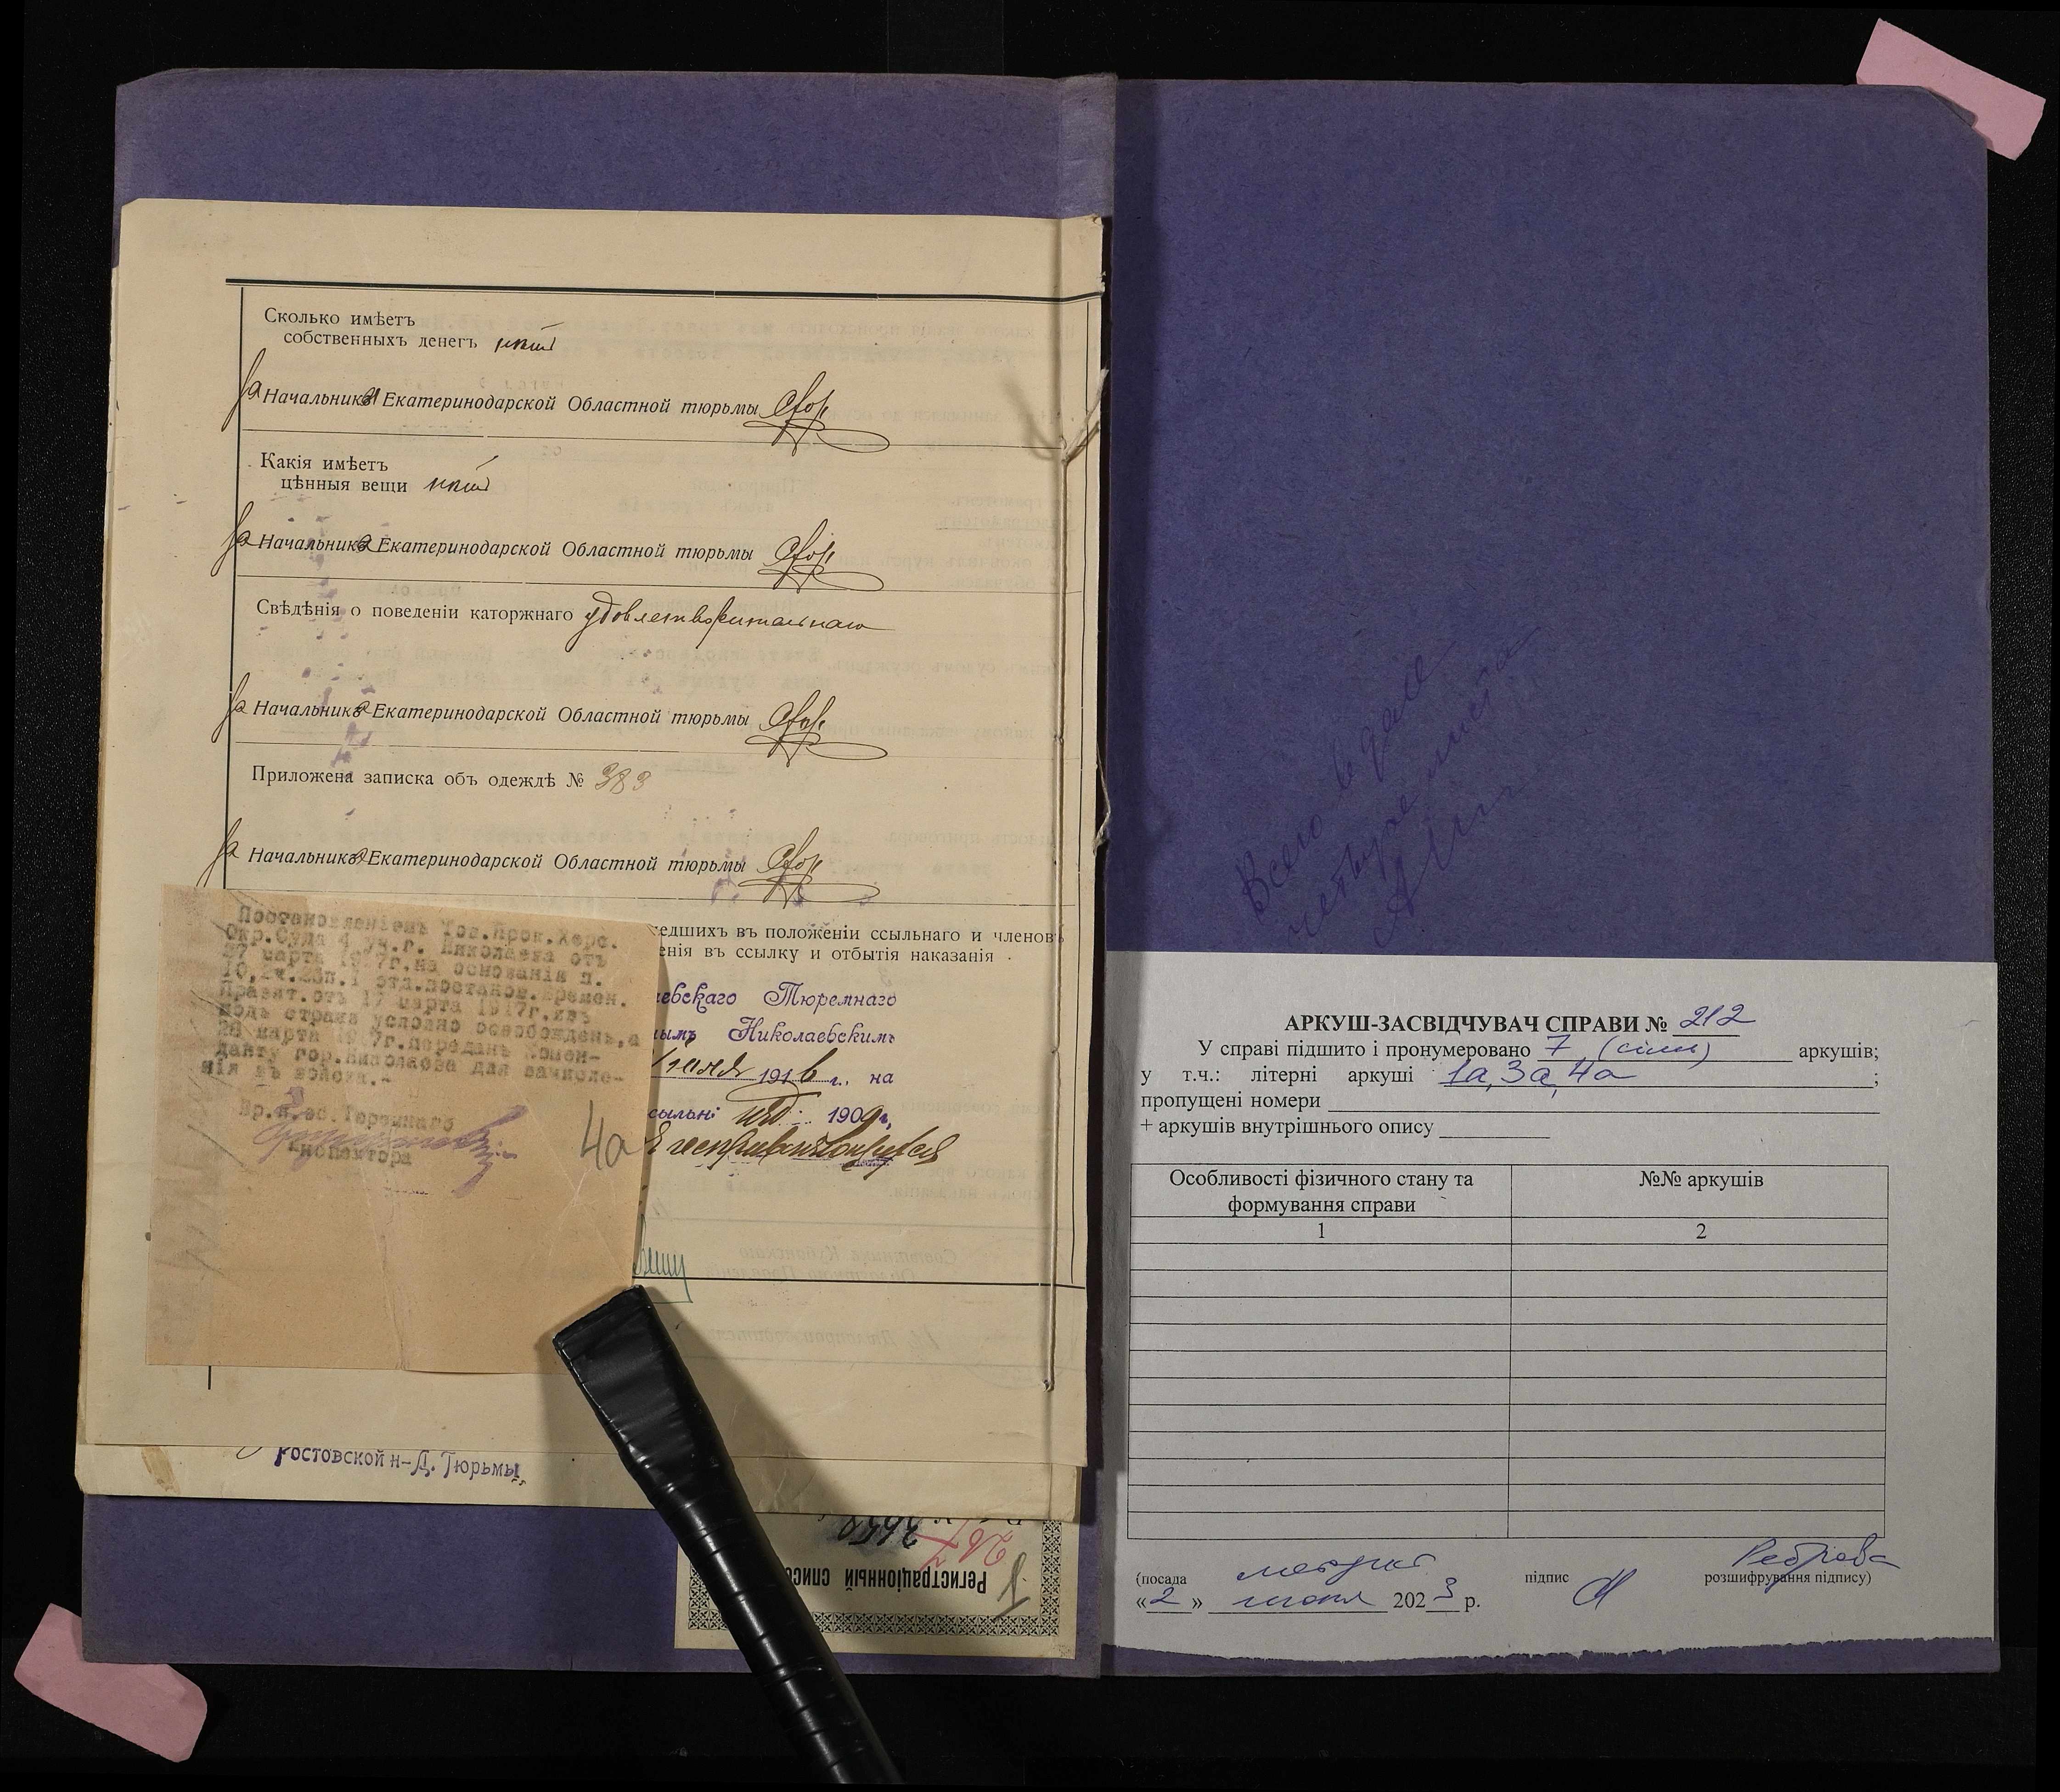 Сколько имѣетъ
собственныхъ денегъ нѣтъ
За Начальника Екатеринодарской Областной тюрьмы
Какія имѣетъ
цѣнныя вещи нѣтъ
За Начальника Екатеринодарской Областной тюрьмы
Свѣдѣнія о поведеніи каторжнаго удовлетворительнаго
За Начальника Екатеринодарской Областной тюрьмы
Приложена записка объ одеждѣ № 383
За Начальника Екатеринодарской Областной тюрьмы
едшихъ въ положеніи ссыльнаго и членовъ
енія въ ссылку и отбытія наказанія .
аевскаго Тюремнаго
нымъ Николаевскимъ
1916 г. на
сыльн 1909 г.
Постановленіемъ Тов.Прок.Херс.
Окр.Суда 4 уч.г. Николаева отъ
27 марта 1917г.на основаніи п.
Правит.отъ 17 марта 1917г.изъ
подъ стража условно освобожденъ,а
28 марта 1917г.переданъ Комен-
данту гор.Николаева для зачисле-
нія въ войска.-
Тюремнаго
Инспектора
4а
Ростовской н-Д. Тюрьмы
Регистраціонный списо
Всего в деле
четыре листа
АРКУШ-ЗАСВІДЧУВАЧ СПРАВИ № 212
У справі підшито і пронумеровано 7 (сім) аркушів;
у т.ч.: літерні аркуші 1а, 3а, 4а ;
пропущені номери
+ аркушів внутрішнього опису
Особливості фізичного стану та формування справи
№№ аркушів
1
2
(посада
підпис
Реброва
розшифрування підпису)
«2» 2023 р.